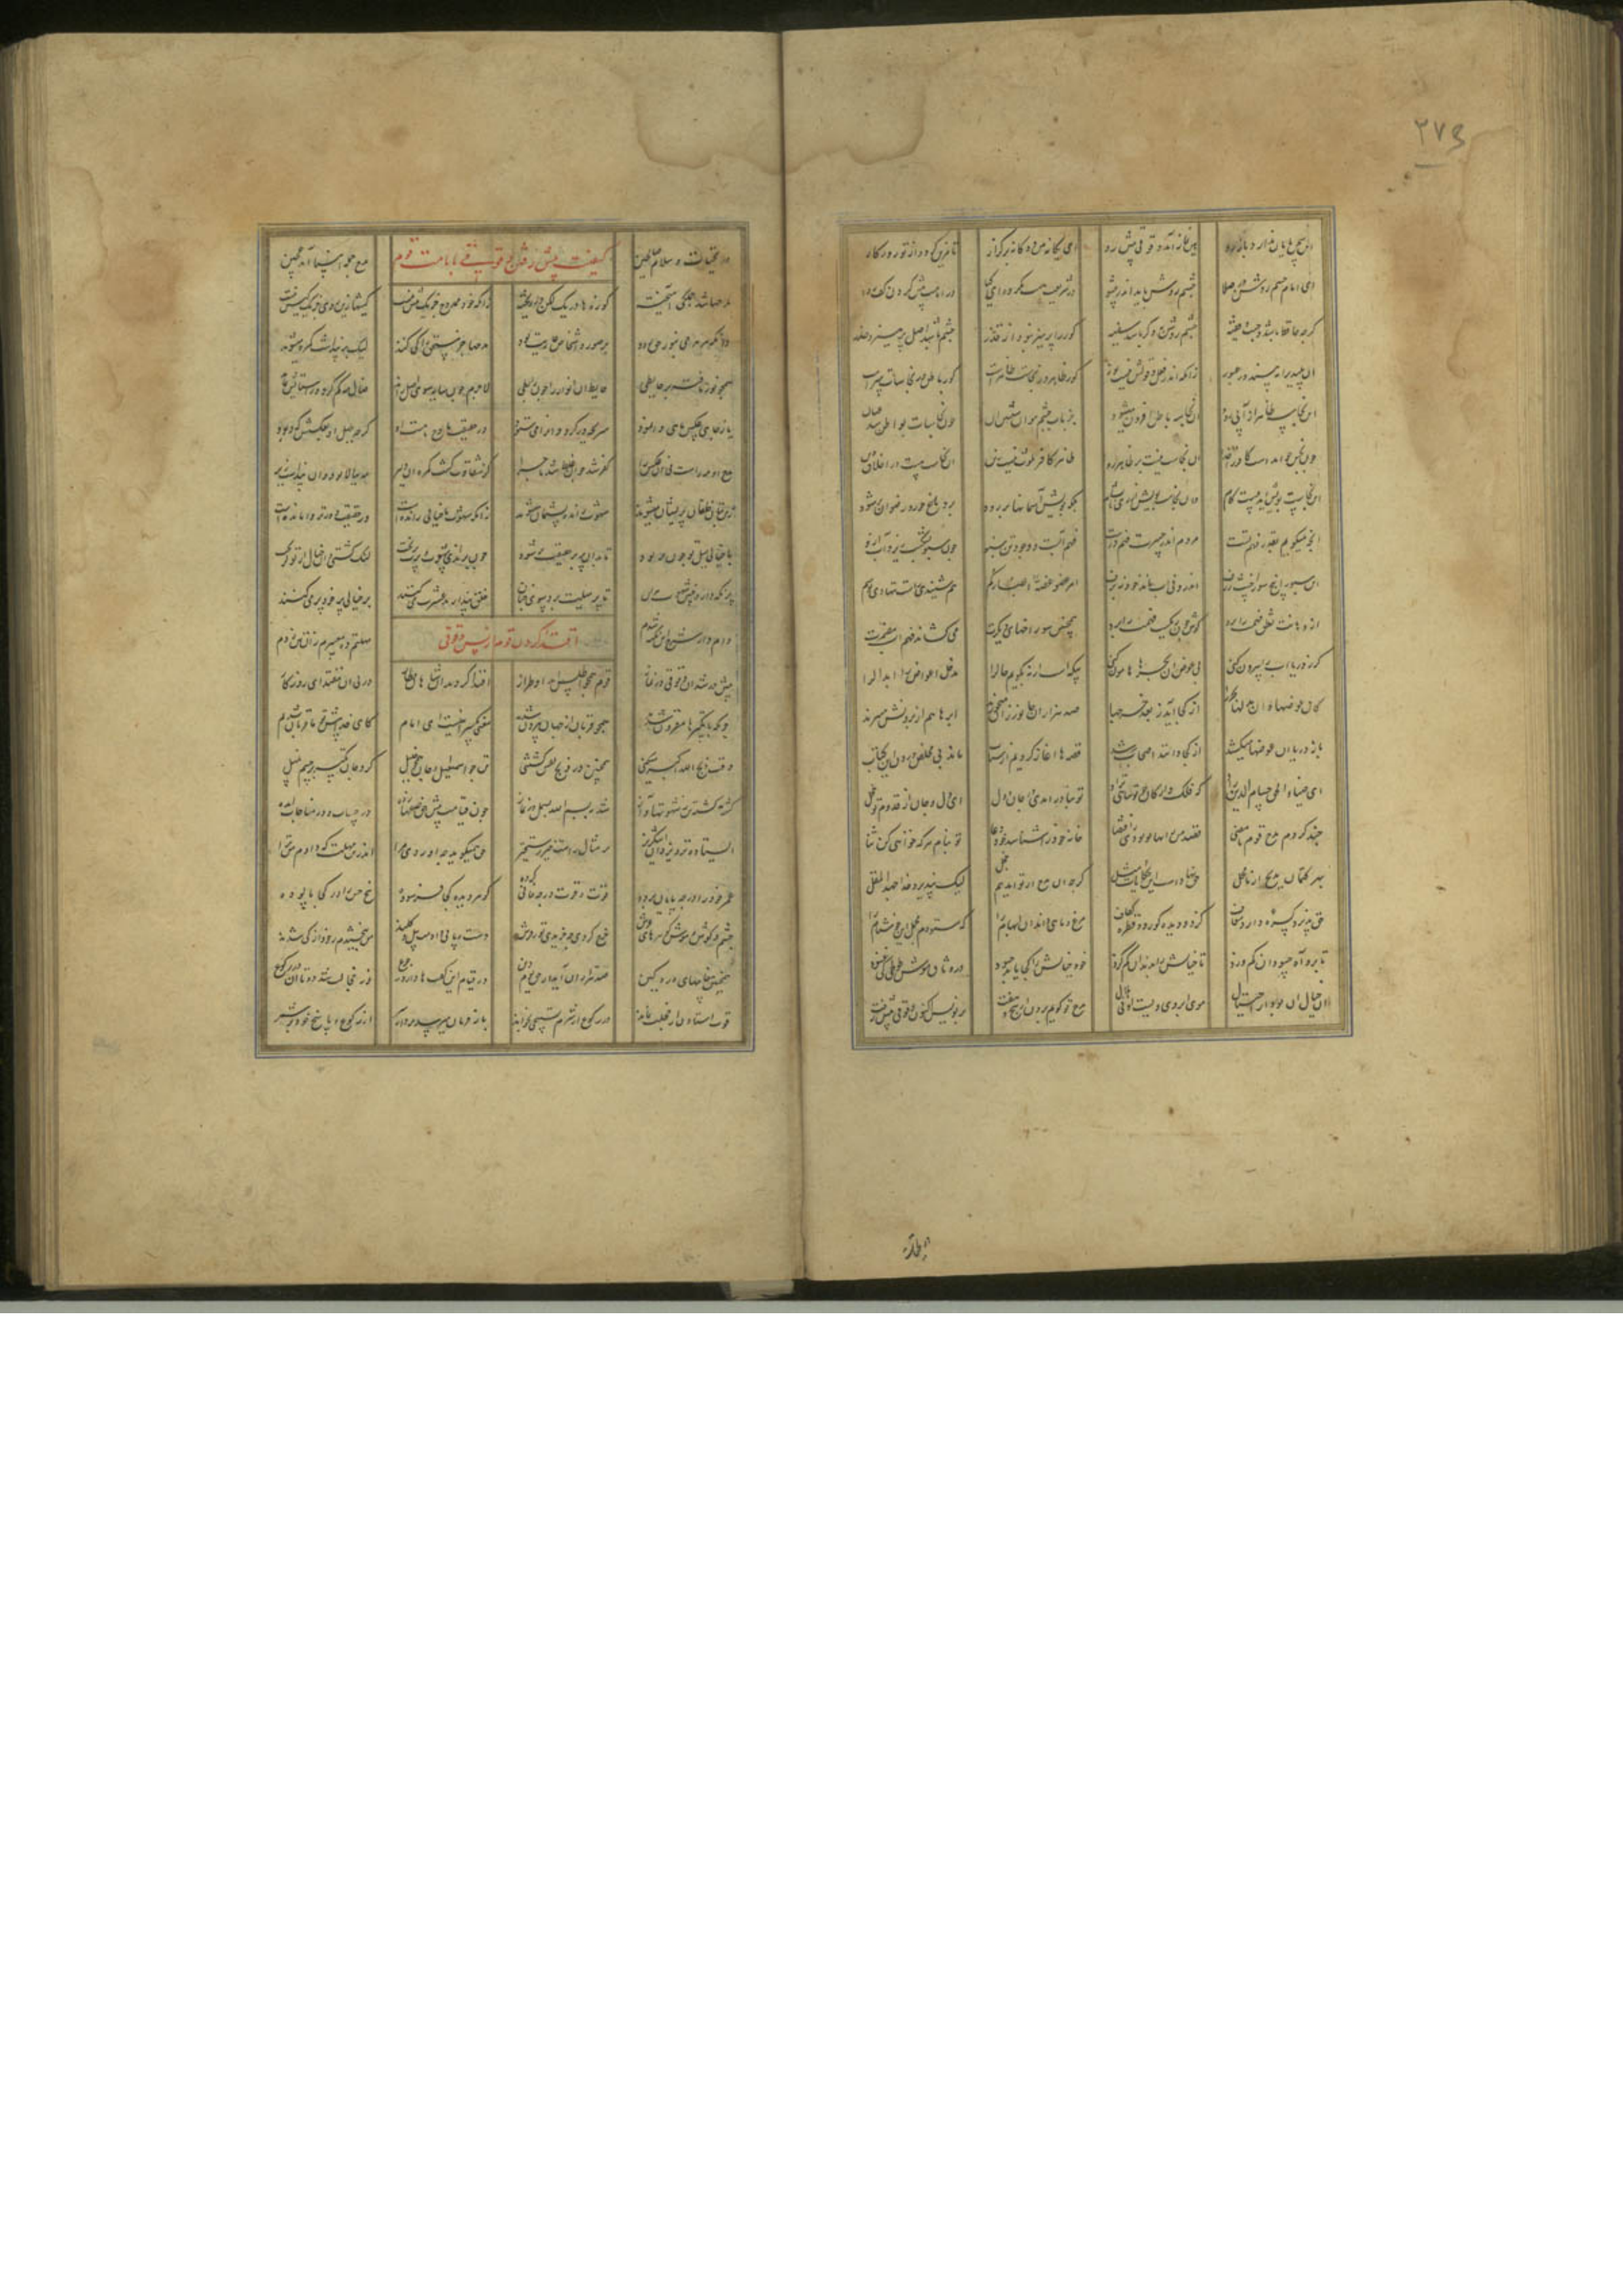 ۲۷۳
این سخن پایان ندارد تیز رو هین نماز آمد دقوقی پیش رو ای یگانه هین دوگانه بر گزار تا مزین گردد از تو روزگار
ای امام چشم روشن در صلا چشم روشن باید اندر پیشوا در شریعت هست مکروه ای کیا در امامت پیش کردن کور را
گرچه حافظ باشد و چست و فقیه چشم روشن به وگر باشد سفیه کور را پرهیز نبود از قذر چشم باشد اصل پرهیز و حذر
او پلیدی را نبیند در عبور کور ظاهر در نجاست ظاهرست کور باطن در نجاسات سرست
این نجاست ظاهر از آبی رود آن نجاست باطن افزون میشود جز بآب چشم نتوان شستن آن چون نجاسات بواطن شد عیان
چون نجس خواندست کافر را خدا آن نجاست نیست بر ظاهر ورا ظاهر کافر ملوث نیست زین آن نجاست هست در اخلاق و دین
این نجاست بویش آید بیست گام و آن نجاست بویش از ری تا بشام بلکه بویش آسمانها بر رود بر دماغ حور و رضوان بر شود
آنچه میگویم بقدر فهم تست مردم اندر حسرت فهم درست فهم آبست و وجود تن سبو چون سبو بشکست ریزد آب ازو
این سبو را پنج سوراخست ژرف اندرو نی آب ماند خود نه برف
از دهانت نطق فهمت را برد گوش چون ریگست فهمت را برد همچنین سوراخهای دیگرت می کشاند فهم
گر ز دریا آب را بیرون کنی بی عوض آن بحر را هامون کنی بیگهست ار نه بگویم حال را مدخل اعواض را و ابدال را
کان عوضها و آن بدلها بحر را از کجا آید ز بعد خرجها صد هزاران جانور زو می خورند ابرها هم از برونش می برند
باز دریا آن عوضها میکشد از کجا دانند اصحاب رشد قصه ها آغاز کردیم از شتاب ماند بی مخلص درون این کتاب
ای ضیاء الحق حسام الدین که فلک و ارکان چو تو شاهی نزاد تو بنادر آمدی در جان و دل ای دل و جان از قدوم تو خجل
چند کردم مدح قوم ما مضی قصد من زانها تو بودی ز اقتضا خانه خود را شناسد خود دعا تو بنام هر که خواهی کن ثنا
بهر کتمان مدیح از نامحل حق نهادست این حکایات و مثل گر چنان مدح از تو آمد هم خجل لیک بپذیرد خدا جهد المقل
حق پذیرد کسره دارد معاف کز دو دیده کور دو قطره کفاف مرغ و ماهی داند آن ابهام را که ستودم مجمل این خوش نام را
تا برو آه حسودان کم وزد تا خیالش را بدندان کم گزد خود خیالش را کجا یابد حسود در وثاق موش طوطی کی غنود
آن خیال او بود از احتیال موی ابروی ویست آن نی هلال مدح تو گویم برون از پنج و هفت بر نویس اکنون دقوقی پیش رفت
در تحیات و سلام صالحین کیفیت پیش رفتن دقوقی بامامت قوم مدح جمله انبیا آمد عجین
مدحها شد جملگی آمیخته کوزه ها در یک لگن در ریخته زانکه خود ممدوح جز یک بیش نیست کیشها زین روی جز یک کیش نیست
دان که هر مدحی بنور حق رود بر صور و اشخاص عاریت بود مدحها جز مستحق را کی کنند لیک بر پنداشت گمره میشوند
همچو نوری تافته بر حایطی حایط آن انوار را چون رابطی لاجرم چون سایه سوی اصل راند ضال مه گم کرد و ز استایش بماند
یا ز چاهی عکس ماهی وا نمود سر بچه در کرد و آن را می ستود در حقیقت مادح ماهست او گرچه جهل او بعکسش کرد رو
مدح او مه راست نی آن عکس را کفر شد آن چون غلط شد ماجرا کز شقاوت گشت گمره آن دلیر مه ببالا بود و او پنداشت زیر
زین بتان خلقان پریشان میشوند شهوت رانده پشیمان میشوند زانکه شهوت با خیالی رانده است وز حقیقت دورتر وامانده است
با خیالی میل تو چون پر بود تا بدان پر بر حقیقت بر شود چون براندی شهوتی پرت بریخت لنگ گشتی و آن خیال از تو گریخت
پر نگه دار و چنین شهوت مران تا پر میلت برد سوی جنان خلق پندارند عشرت می کنند بر خیالی پر خود بر می کنند
وام دار شرح این نکته شدم اقتدا کردن قوم از پس دقوقی مهلتم ده معسرم زان تن زدم
پیش در شد آن دقوقی در نماز قوم همچون اطلس آمد او طراز اقتدا کردند آن شاهان قطار در پی آن مقتدای روزگار
چونکه با تکبیرها مقرون شدند همچو قربان از جهان بیرون شدند معنی تکبیر اینست ای امام کای خدا پیش تو ما قربان شدیم
وقت ذبح الله اکبر می کنی همچنین در ذبح نفس کشتنی تن چو اسمعیل و جان همچون خلیل کرد جان تکبیر بر جسم نبیل
گشت کشته تن ز شهوتها و آز شد ببسم الله بسمل در نماز چون قیامت پیش حق صفها زده در حساب و در مناجات آمده
ایستاده پیش یزدان اشک ریز بر مثال راست خیز رستخیز حق همی گوید چه آوردی مرا اندرین مهلت که دادم من ترا
عمر خود را در چه پایان برده قوت و قوت در چه فانی کرده گوهر دیده کجا فرسوده پنج حس را در کجا پالوده
چشم و گوش و هوش و گوهرهای عرش خرج کردی چه خریدی تو ز فرش دست و پا دادمت چون بیل و کلند من ببخشیدم ز خود آن کی شدند
همچنین پیغامهای دردگین صد هزاران آید از حق در قیام این گفتها دارد رجوع وز خجالت شد دوتا او در رکوع
قوت استادن از خجلت نماند در رکوع از شرم تسبیحی بخواند باز فرمان میرسد بردار سر از رکوع و پاسخ حق بر شمر